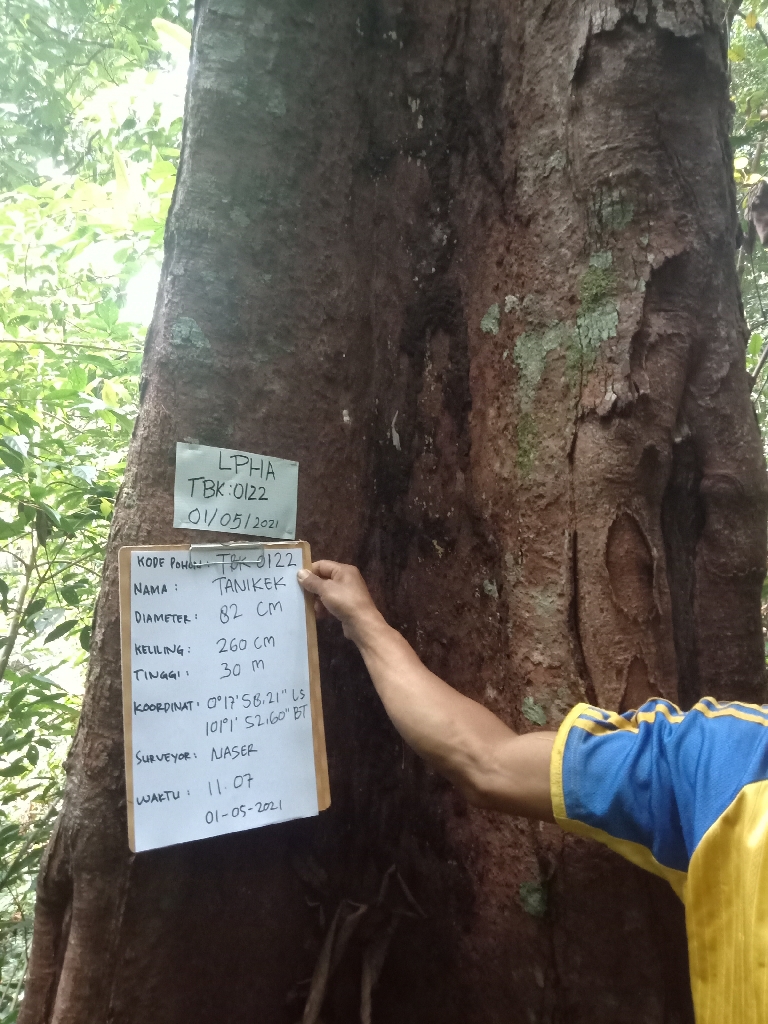 LPHA
TBK:0122
01/05/2021
KODE POHON: TBK 0122
NAMA: TANIKEK
DIAMETER: 82 CM
KELILING: 260 CM
TINGGI: 30 M
KOORDINAT: 0°17'58.21" LS
101°1'52,60" BT
SURVEYOR: NASER
WAKTU: 11.07
01-05-2021